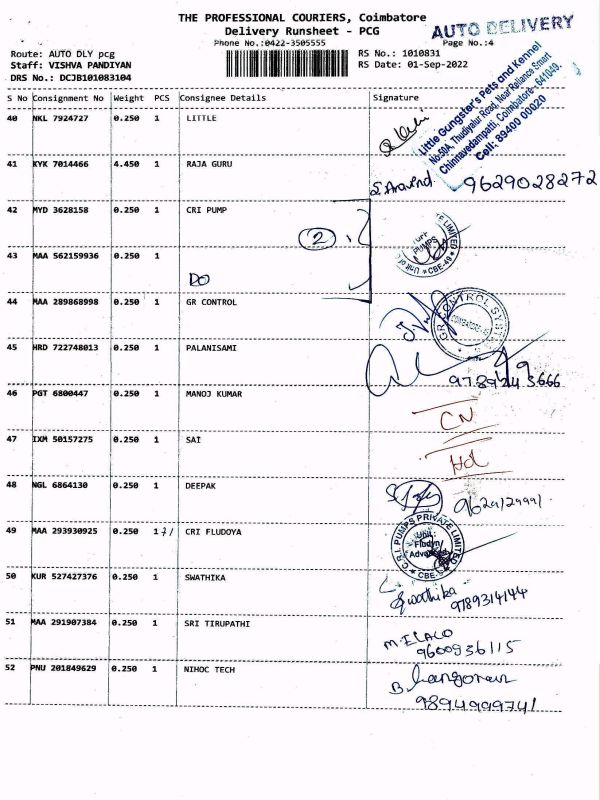 THE PROFESSIONAL COURIERS, Coimbatore
Delivery Runsheet - PCG
AUTO DELIVERY
Phone No.:0422-3505555
Page No.:4
Route: AUTO DLY pcg
RS No.: 1010831
Staff: VISHVA PANDIYAN
RS Date: 01-Sep-2022
DRS No.: DCJB101083104
S No Consignment No Weight PCS Consignee Details Signature
Little Gungster's Pets and Kennel
No:50A, Thudiyalur Road, Near Reliance Smart
Chinnavedampatti, Coimbatore - 641049.
Cell: 89400 00020
40 NKL 7924727 0.250 1 LITTLE
41 KYK 7014466 4.450 1 RAJA GURU
S. Aravind 9629028272
42 MYD 3628158 0.250 1 CRI PUMP
2
PUMPS
CBE-49
43 MAA 562159936 0.250 1
DO
44 MAA 289868998 0.250 1 GR CONTROL
GR CONTROL SYSTEMS
45 HRD 722748013 0.250 1 PALANISAMI
46 PGT 6800447 0.250 1 MANOJ KUMAR
CN
47 IXM 50157275 0.250 1 SAI
Hd
48 NGL 6864130 0.250 1 DEEPAK
49 MAA 293930925 0.250 1 CRI FLUDOYA
C.R.I. PUMPS PRIVATE LIMITED
Unit:
Fludyn
Advanced
50 KUR 527427376 0.250 1 SWATHIKA
Swathika
9789314144
51 MAA 291907384 0.250 1 SRI TIRUPATHI
9600936115
52 PNU 201849629 0.250 1 NIHOC TECH
9894999741